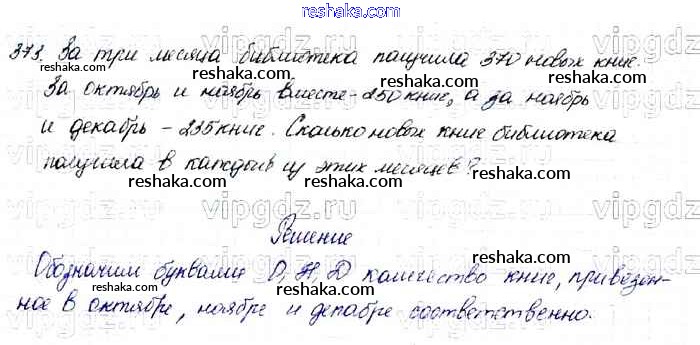 reshaka.com
373. За три месяца библиотека получила 370 новых книг.
За октябрь и ноябрь вместе - 250 книг, а за ноябрь
и декабрь - 235 книг. Сколько новых книг библиотека
получила в каждый из этих месяцев?
Решение
Обозначим буквами О, Н, Д количество книг, привезен-
ное в октябре, ноябре и декабре соответственно.
vipgdz.ru
reshaka.com